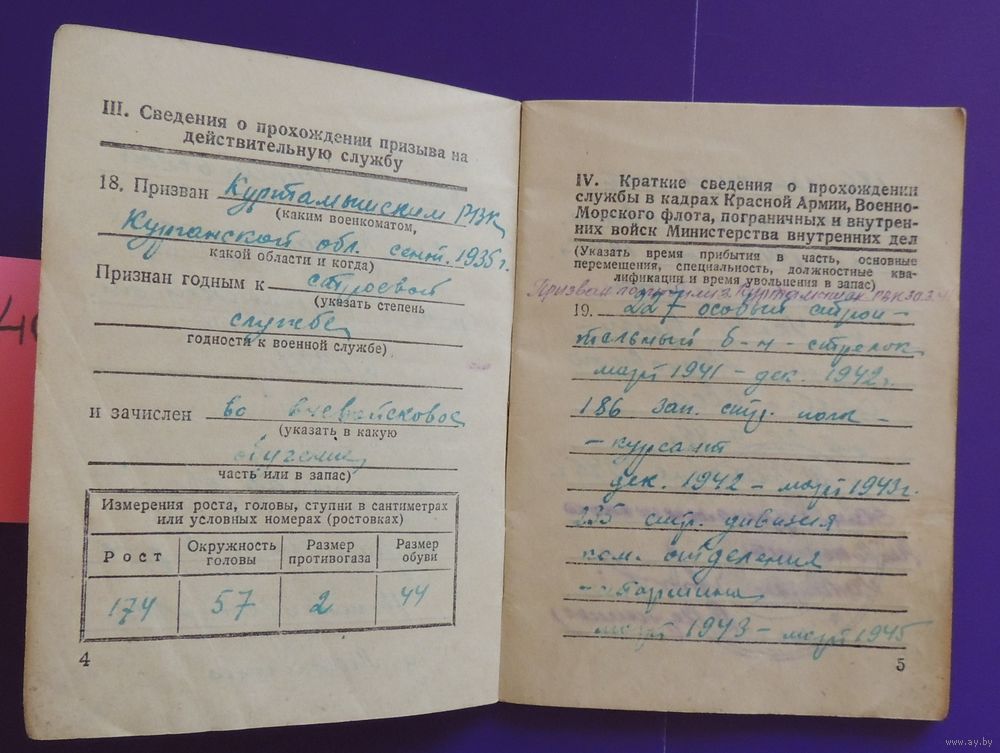 III. Сведения о прохождении призыва на
действительную службу
18. Призван Куртамышским РВК
(каким военкоматом,
Курганской обл. сент. 1935 г.
какой области и когда)
Признан годным к строевой
(указать степень
службе
годности к военной службе)
и зачислен во вневойсковое
(указать в какую
обучение
часть или в запас)
Измерения роста, головы, ступни в сантиметрах
или условных номерах (ростовках)
Рост Окружность головы Размер противогаза Размер обуви
174 57 2 44
4
IV. Краткие сведения о прохождении
службы в кадрах Красной Армии, Военно-
Морского флота, пограничных и внутрен-
них войск Министерства внутренних дел
(Указать время прибытия в часть, основные
перемещения, специальность, должностные ква-
лификации и время увольнения в запас)
Призван по Куртамышск РВК
19. 227 особый строи-
тельный б-н - стрелок
март 1941 - дек. 1942 г.
186 зап. стр. полк -
- курсант
дек. 1942 - март 1943 г.
235 стр. дивизия
ком. отделения
- старшина
март 1943 - март 1945
5
www.ay.by